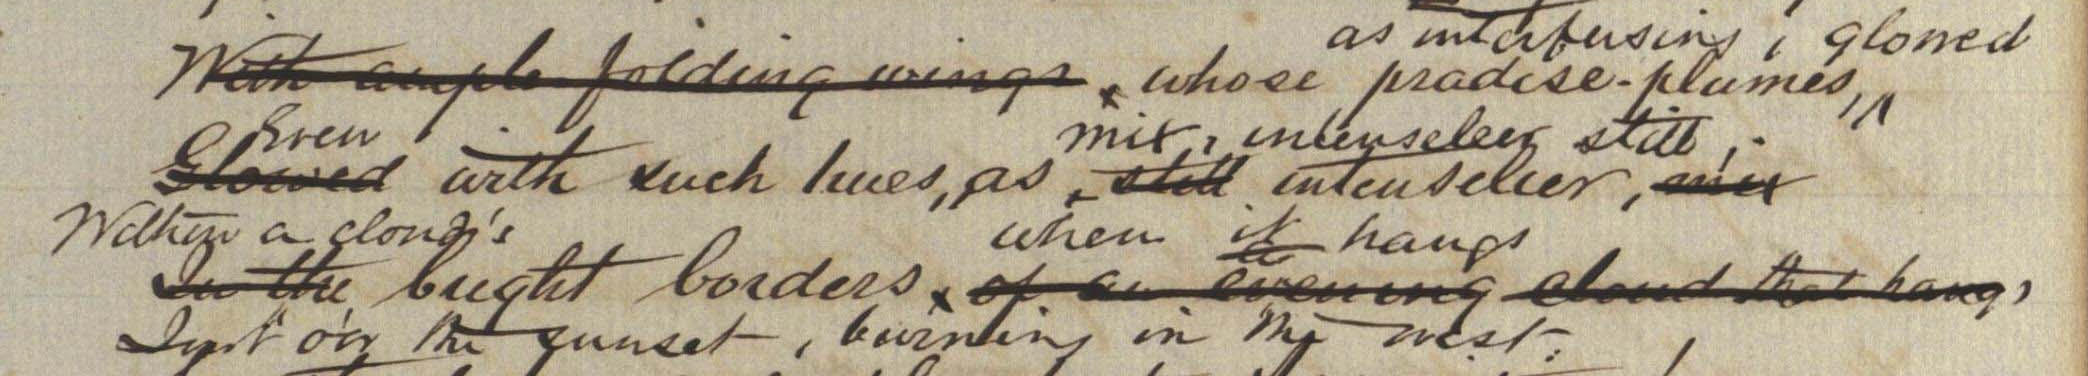 as interfusing, glowed
With ample folding wings, whose pradise-plumes,
Even mix, intenselier still,
Glowed with such hues, as, still intenselier, mix
Within a cloud's when it hangs
In the bright borders, of an evening cloud that hangs
Just o'er the sunset, burning in the west: